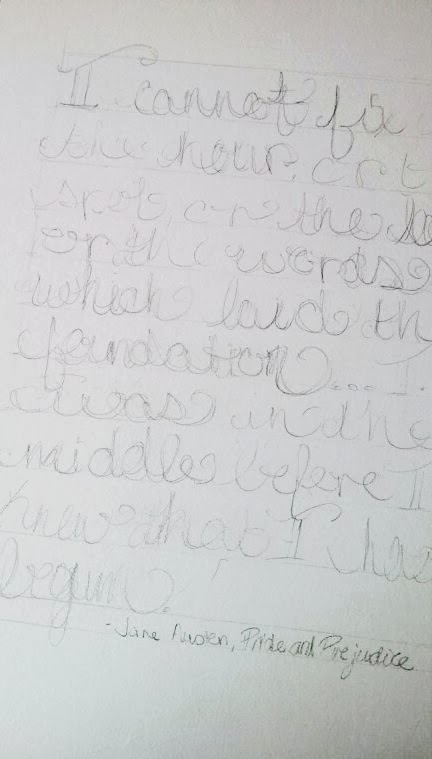 I cannot fix
the hour, or t
spot, or the lo
or the words
which laid th
foundation... I.
was in the
middle before I
knew that I had
begun.
-Jane Austen, Pride and Prejudice